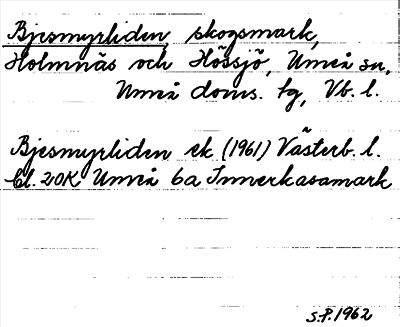 Bjesmyrliden skogsmark,
Holmnäs och Hössjö, Umeå sn,
Umeå doms. tg, Vb. l.
Bjesmyrliden ek. (1961) Västerb. l.
bl. 20K Umeå 6a Innerkasamark
S.P. 1962